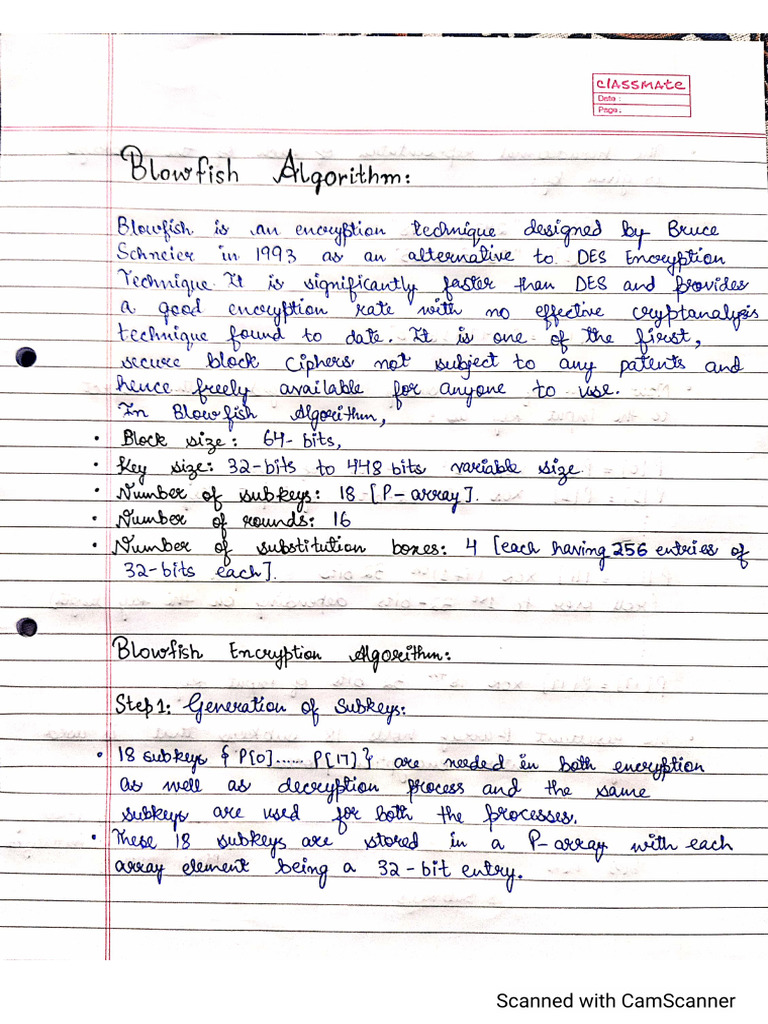 classmate
Date :
Page :
Blowfish Algorithm:
Blowfish is an encryption technique designed by Bruce
Schneier in 1993 as an alternative to DES Encryption
Technique. It is significantly faster than DES and provides
a good encryption rate with no effective cryptanalysis
technique found to date. It is one of the first,
secure block ciphers not subject to any patents and
hence freely available for anyone to use.
In Blowfish Algorithm,
• Block size: 64-bits,
• Key size: 32-bits to 448 bits variable size.
• Number of subkeys: 18 [P-array].
• Number of rounds: 16
• Number of substitution boxes: 4 [each having 256 entries of
32-bits each].
Blowfish Encryption Algorithm:
Step1: Generation of Subkeys:
• 18 subkeys { P[0]...... P[17] } are needed in both encryption
as well as decryption process and the same
subkeys are used for both the processes.
• These 18 subkeys are stored in a P-array with each
array element being a 32-bit entry.
Scanned with CamScanner